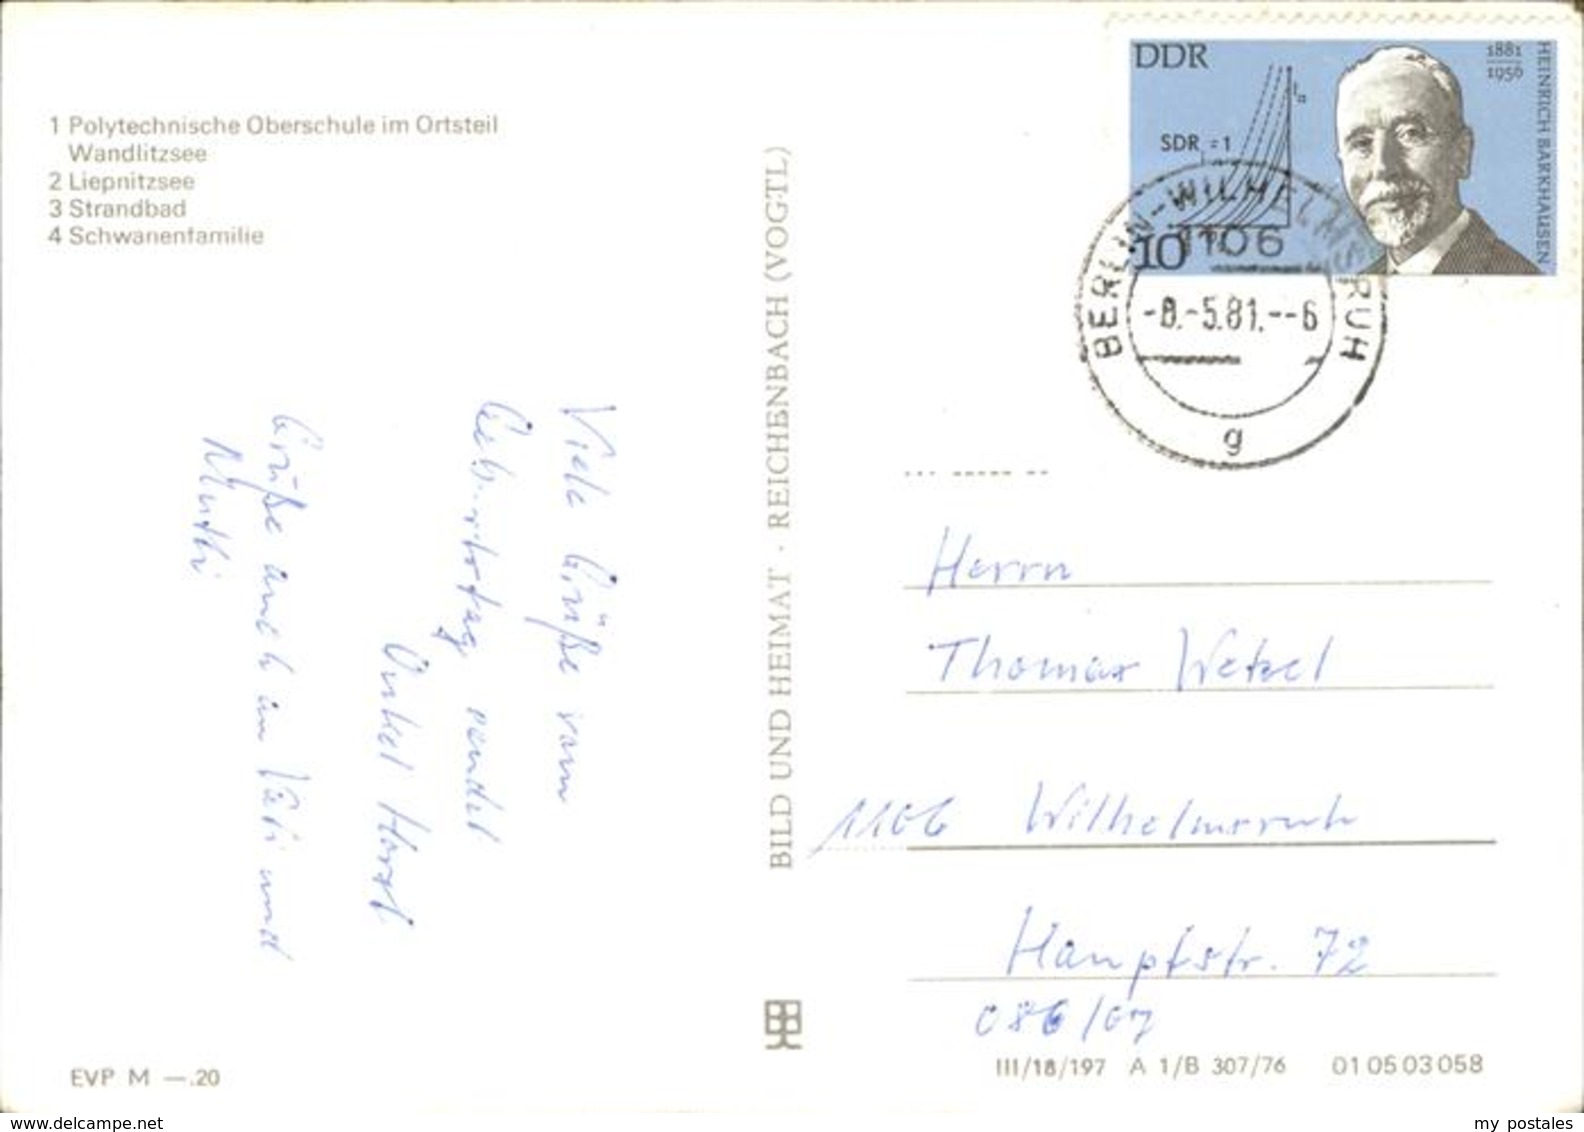 1 Polytechnische Oberschule im Ortsteil
Wandlitzsee
2 Liepnitzsee
3 Strandbad
4 Schwanenfamilie
Viele Grüße vom
Geburtstag sendet
Onkel Horst
Grüße auch an Vati und
Mutti
EVP M —.20
BILD UND HEIMAT · REICHENBACH (VOGTL)
DDR
1881
1956
HEINRICH BARKHAUSEN
Ia
SDRi=1
10
BERLIN-WILHELMSRUH
1106
-8.-5.81.--6
g
Herrn
Thomas Wetzel
1106 Wilhelmsruh
Hauptstr. 72
086/07
III/18/197 A 1/B 307/76 01 05 03 058
www.delcampe.net
my postales